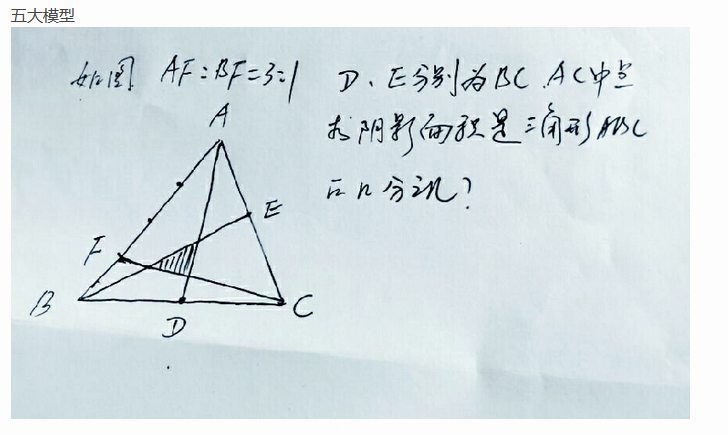 五大模型
如图 AF:BF=3:1 D、E分别为BC、AC中点
求阴影面积是三角形ABC
的几分之几?
A
E
F
B
D
C